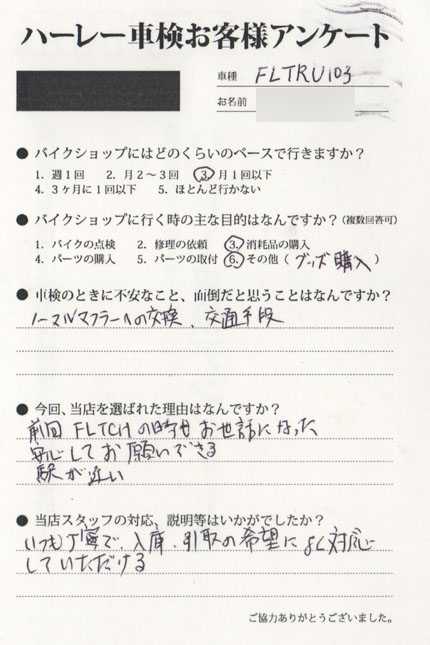 ハーレー車検お客様アンケート
車種 FLTRU103
お名前
● バイクショップにはどのくらいのペースで行きますか？
1. 週1回 2. 月2〜3回 3. 月1回以下
4. 3ヶ月に1回以下 5. ほとんど行かない
● バイクショップに行く時の主な目的はなんですか？(複数回答可)
1. バイクの点検 2. 修理の依頼 3. 消耗品の購入
4. パーツの購入 5. パーツの取付 6. その他 ( グッズ購入 )
● 車検のときに不安なこと、面倒だと思うことはなんですか？
ノーマルマフラーへの交換、交通手段
● 今回、当店を選ばれた理由はなんですか？
前回 FLTCHの時もお世話になった
安心してお願いできる
駅が近い
● 当店スタッフの対応、説明等はいかがでしたか？
いつも丁寧で、入庫、引取の希望によく対応
していただける
ご協力ありがとうございました。